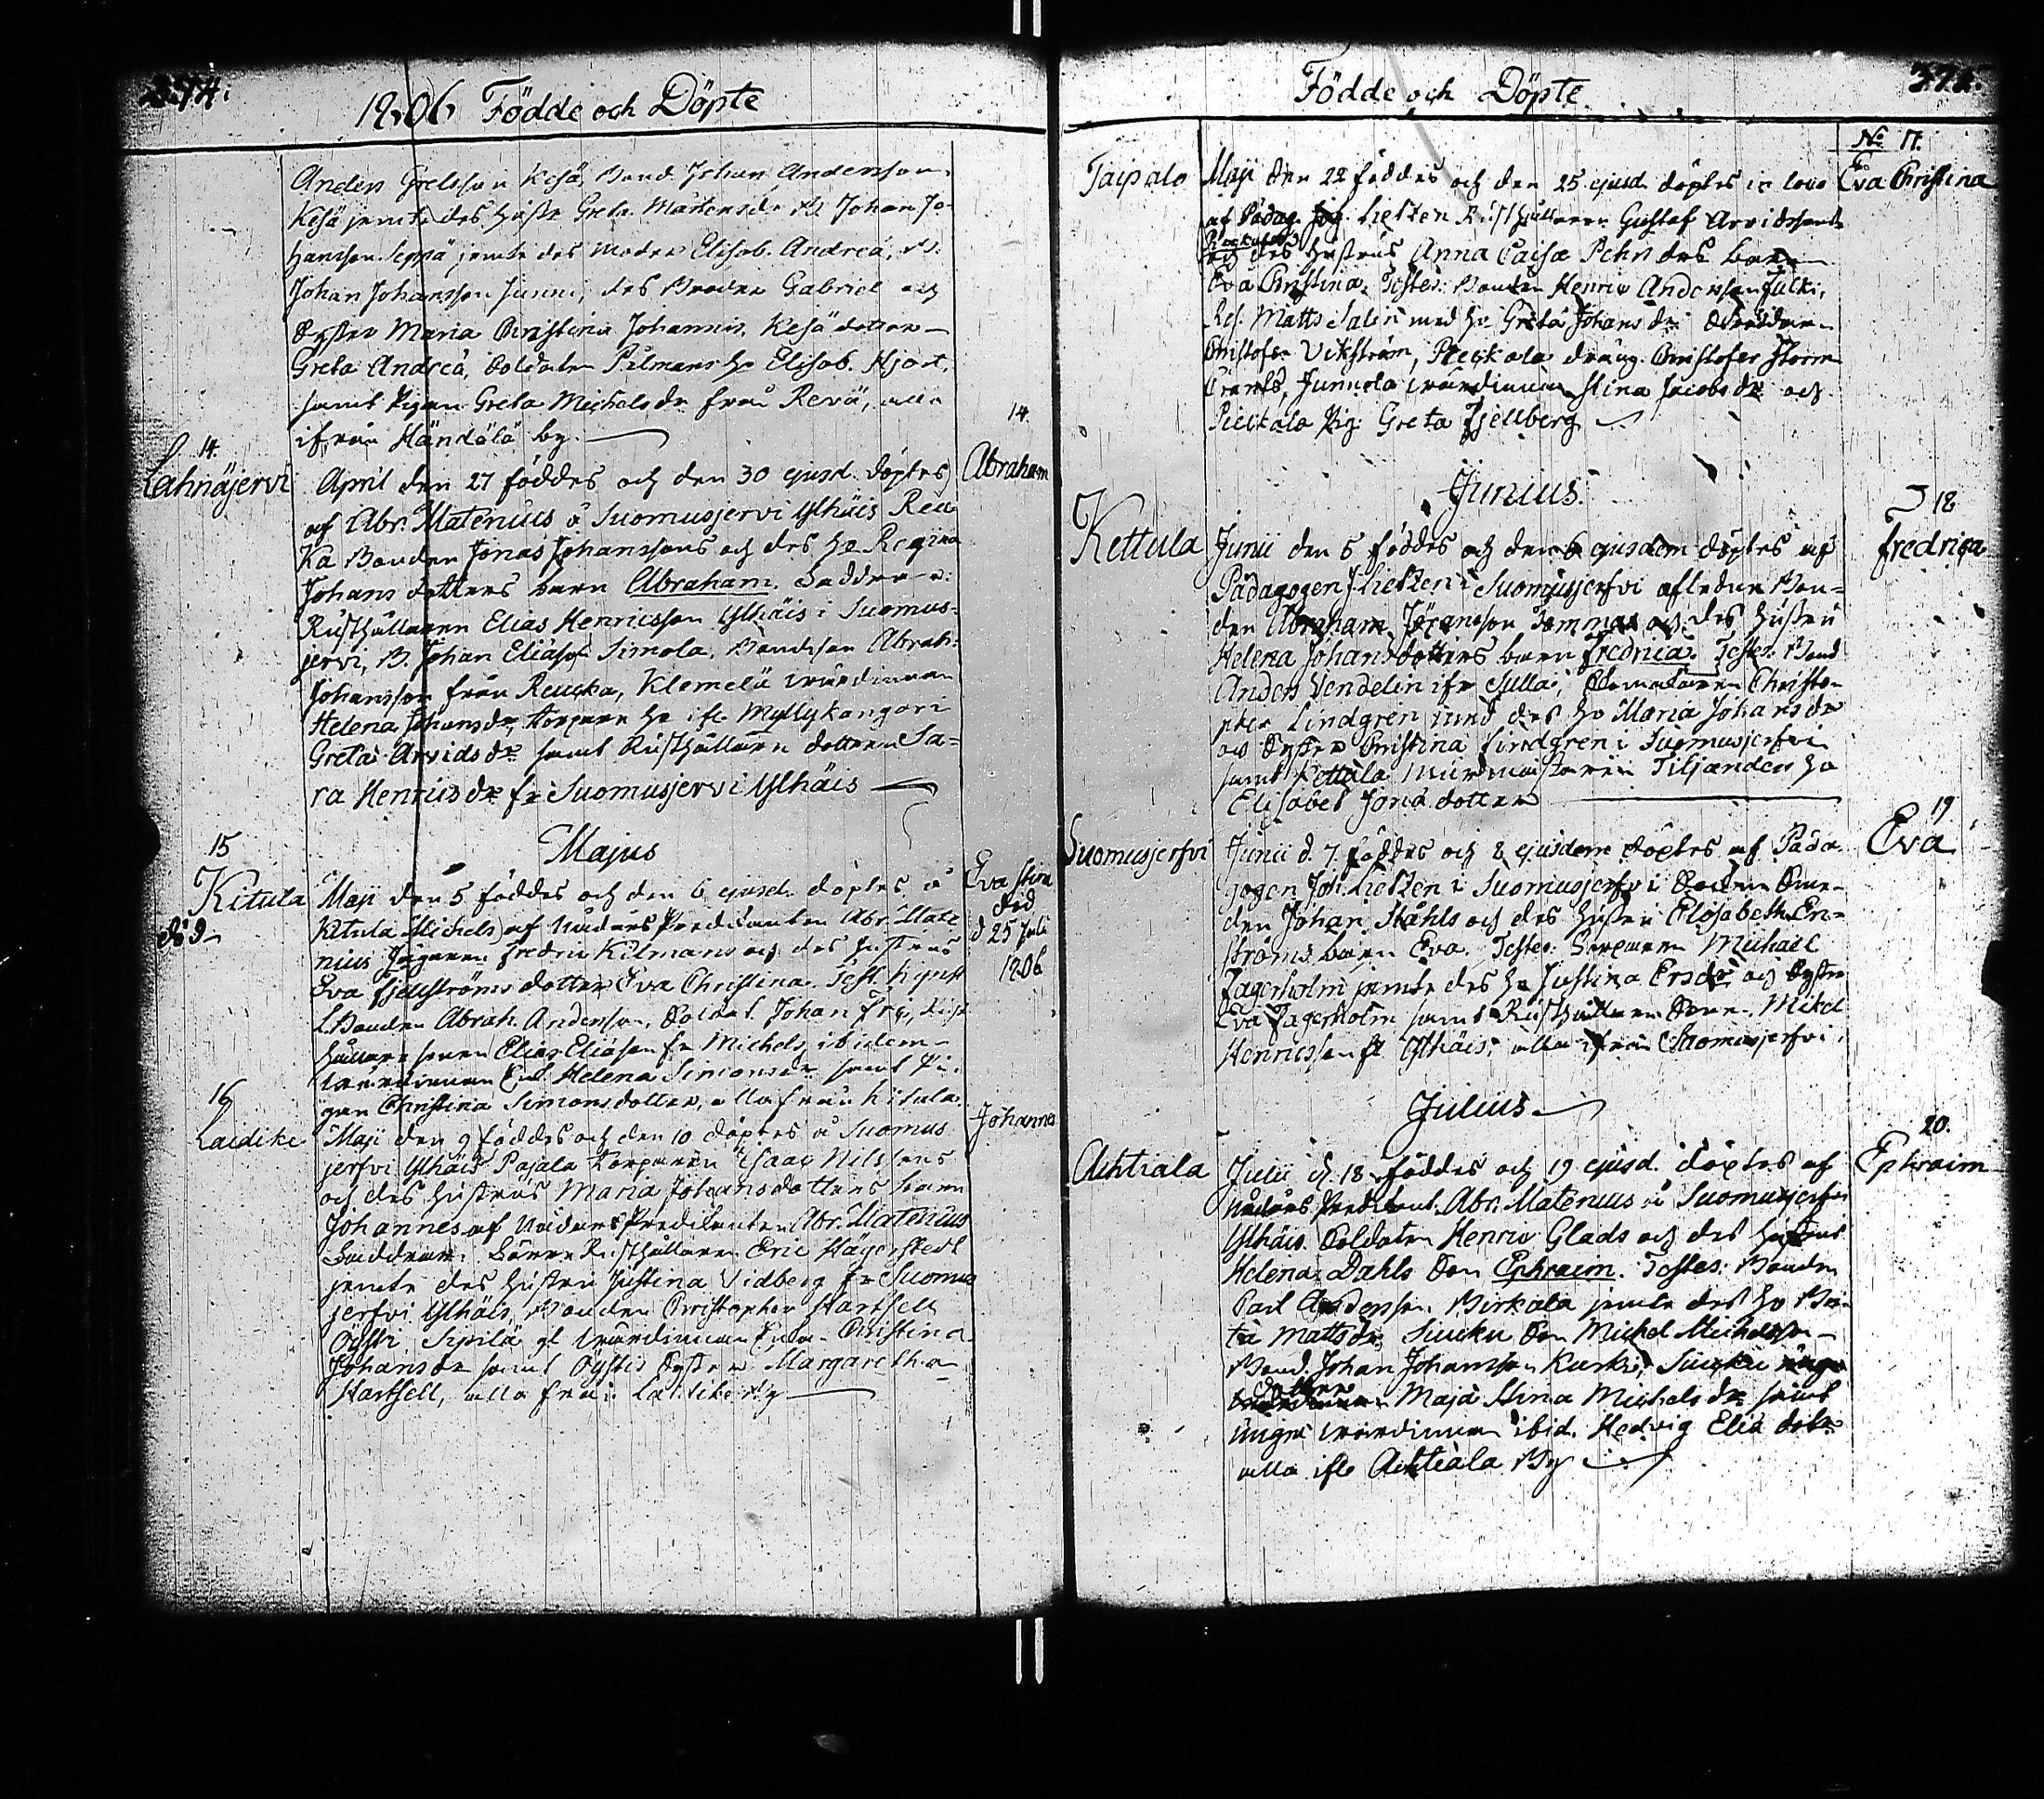 374.
1806 Födde och Döpte
Anders Grelsson Kesä, Bond. Johan Andersson
Kesä jemte des hustr. Greta Mårtensdr B. Johan Jo-
hansson Seppä jemte des moder Elisab. Andreä,
Johan Johansson Junni, des Broder Gabriel och
Syster Maria Christina Johannis, Kesä dotter
Greta Andreä, Soldaten Pilmans h. Elisab. Hjort,
samt Pigan Greta Michelsdr från Revä, alla
ifrån Händölä by.
14.
Lahnajervi
April den 27 föddes och den 30 ejusd. döptes
af Abr. Matenius å Suomusjervi Ylhäis Reu
ka Bonden Jonas Johanssons och des h. Regina
Johans dotters barn Abraham. Faddrar:
Rusthållaren Elias Henricsson Ylhäis i Suomus-
jervi, B. Johan Eliass. Simola, Bondeson Abrah:
Johansson från Reucka, Klemelä värdinnan
Helena Johansdr, torpare h. ifr. Myllykangari
Greta Arvidsdr samt Rusthållare dottern Sa-
ra Henricsdr fr. Suomusjervi Ylhäis
14.
Abraham
Majus
15
Kitula
död
Maji den 5 föddes och den 6 ejusd. döptes å
Kitula Michels af Nådårs Predikanten Abr. Mate
nius Jägaren Fredric Kilmans och des hustrus
Eva Fjellströms dotter Eva Christina. Test.
Bonden Abrah. Andersson, Soldat. Johan Frij, Rust
hållare sonen Elias Eliasson fr. Michels ibidem
värdinnan Helena Simonsdr samt Pi-
gan Christina Simonsdotter, alla från Kitula.
Eva Stina
död
d 25 Juli
1806
16
Laidike
Maji den 9 föddes och den 10 döptes å Suomus
jerfvi Ylhäis Pajala torparen Isaac Nilssons
och des hustrus Maria Johansdotters barn
Johannes af Nådårs Predikanten Abr. Matenius
Faddrar: Rusthållaren Eric Hägerstedt
jemte des hustru Justina Vidberg fr Suomus
jerfvi Ylhäis, Bonden Christopher Hartsell
Öysti, Sipilä gl. värdinnan Christina
Johansdr samt Öystis Syster Margaretha
Hartsell, alla från Laidike By
Johannes
Födde och Döpte
375.
No 17.
Taipalo
Maji den 22 föddes och den 25 ejusd. döptes in loco
af Pädag. Joh. Lietzen Rusthållaren Gustaf Arvidssons
och des hustrus Anna Caisa Pehrsdrs barn
Eva Christina. Testes: Bonden Henric Andersson Julki,
Res. Matts Salin med h. Greta Johansdr
Christofer Vikström, Pieckala dräng. Christofer Storm
Junnola värdinnan Stina Jacobsdr och
Pieckala Pig. Greta Fjellberg
Eva Christina
Junius.
Kettula
Junii den 5 föddes och den 6 ejusdem döptes af
Pädagogen J. Lietzen i Suomusjerfvi aflidne Bon-
den Abraham Jöransson Tammas och des hustru
Helena Johansdotters barn Fredrica. Testes: Bond
Anders Vendelin ifr Sylla, Christo-
pher Lindgren med des h. Maria Johansdr
och Syster Christina Lindgren i Suomusjerfvi
samt Kettula murmästaren Tiljanders h.
Elisabet Jonä dotter
18
Fredrica
Suomusjerfvi
Junii d. 7. föddes och 8 ejusdem döptes af Päda
gogen Joh. Lietzen i Suomusjerfvi
Johan Ståhls och des hustru Elisabeth En-
ströms barn Eva. Testes: Torparen Michael
Fagerholm jemte des h. Justina Ersdr och Syster
Eva Fagerholm samt Rusthållare Sonen Mikel
Henricsson fr Ylhäis, alla ifrån Suomusjerfvi.
19
Eva
Julius
Achtiala
Julii d. 18 föddes och 19 ejusd. döptes af
Nådårs Predikant. Abr. Matenius å Suomusjerfvi
Ylhäis Soldaten Henric Glads och des hustrus
Helena Dahls Son Ephraim. Testes: Bonden
Carl Andersson Birkala jemte des h. Bri-
ta Mattsdr, Siucku Son Michel Michelsson
Bond. Johan Johansson Kurki, Siucku unga
dottern Maja Stina Michelsdr samt
unga värdinnan ibid. Hedvig Eliä dotter
alla ifr Achtiala By
20.
Ephraim